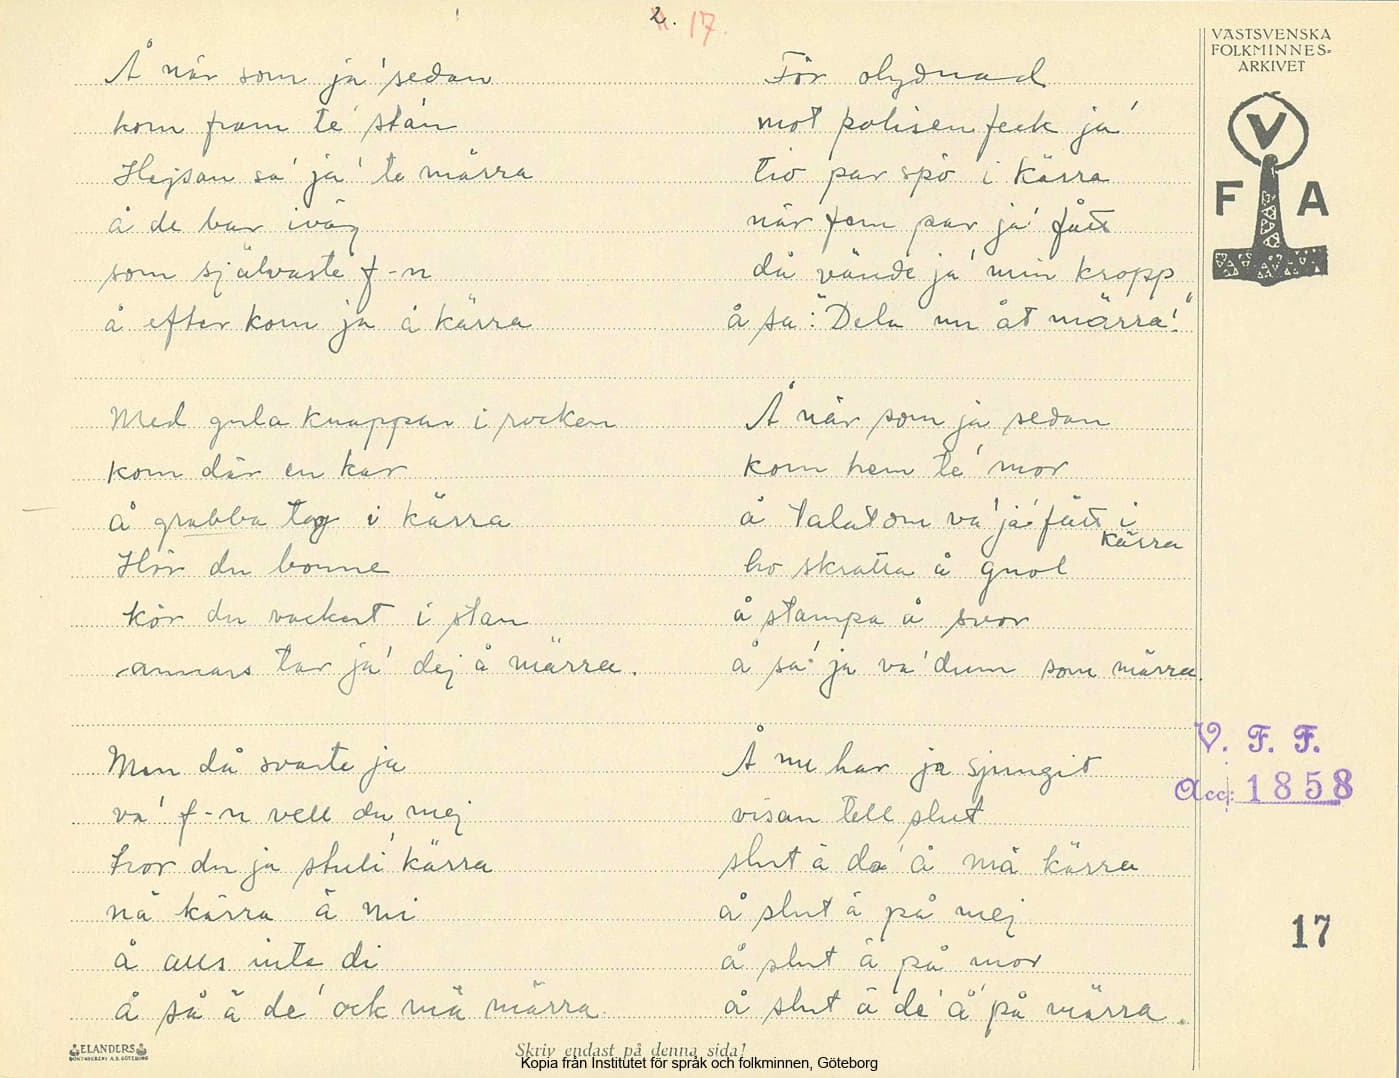 2. 17.
Å när som ja' sedan
kom fram te' stán
Hejsan sa' ja' te märra
å de bar iväg
som självaste f-n
å efter kom ja å kärra
Med gula knappar i rocken
kom där en kar
å grabba tag i kärra
Hör du bonne
kör du vackert i stan
annars tar ja' dej å märra.
Men då svarte ja
va' f-n vell du mej
tror du ja stuli' kärra
nä kärra ä mi
å alls inte di
å så ä de' ock mä märra.
För olydnad
mot polisen feck ja'
tio par spö i kärra
när fem par ja' fått
då vände ja' min kropp
å sa: "Dela nu åt märra!"
Å när som ja sedan
kom hem te' mor
å talat om va' ja' fått i
kärra
ho skratta å gnol
å stampa å svor
å sa' ja va' dum som märra.
Å nu har ja sjungit
visan tell slut
slut ä da' å må kärra
å slut ä på mej
å slut ä på mor
å slut ä de' å' på märra.
VÄSTSVENSKA
FOLKMINNES=
ARKIVET
V
F A
V. F. F.
Acc: 1858
17
ELANDERS
BOKTRYCKERI A.B. GÖTEBORG
Skriv endast på denna sida!
Kopia från Institutet för språk och folkminnen, Göteborg